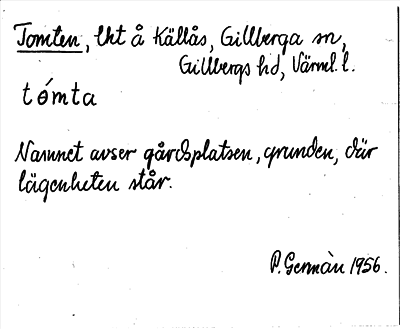 Tomten, lht å Källås, Gillberga sn,
Gillbergs hd, Värml. l.
tómta
Namnet avser gårdsplatsen, grunden, där
lägenheten står.
P. Germàn 1956.